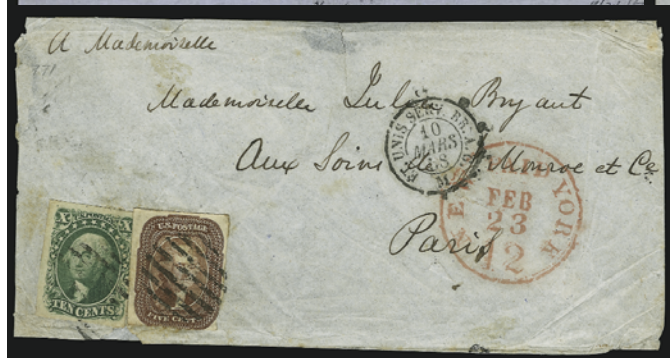 A Mademoiselle
Mademoiselle Julia Bryant
Aux Soins Monroe et Ce.
Paris
ET. UNIS SERV. BR. A.C.
10
MARS
58
M
YORK
FEB
23
12
X X
TEN CENTS
U.S. POSTAGE
FIVE CENTS